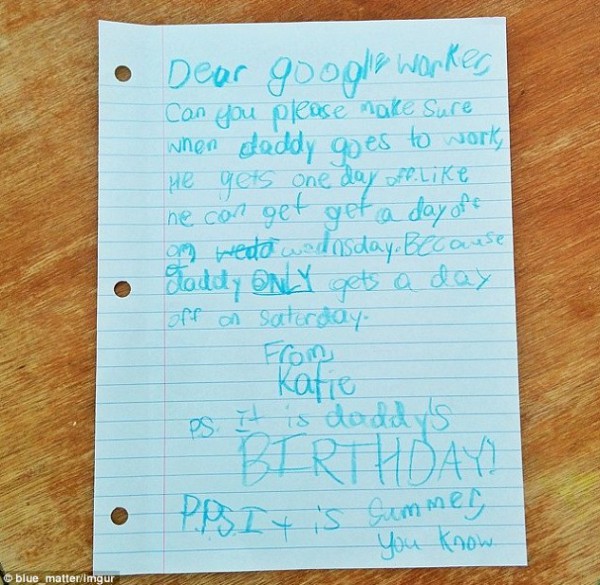 Dear google worker,
Can you please make sure
when daddy goes to work,
He gets one day off. Like
he can get get a day off
on wedd wednsday. BECause
daddy ONLY gets a day
off on saturday.
From,
Katie
PS. It is daddy's
BIRTHDAY!
P.P.S. It is summer,
you know
© blue_matter/imgur